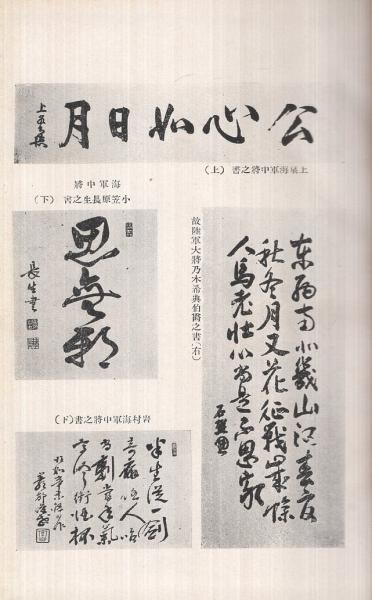 公心如日月
上泉海軍中將之書（上）
海軍中將
小笠原長生之書（下）
思無邪
長生書
故陸軍大將乃木希典伯爵之書（右）
東西南北幾山河春夏
秋冬月又花征戰歳餘
人馬老壯心尚是不思家
石樵
岩村海軍中將之書（下）
半生從一劍